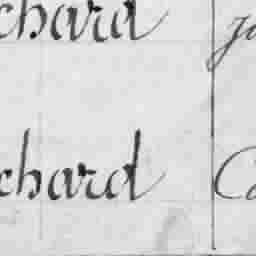 chard Ja
chard Ca